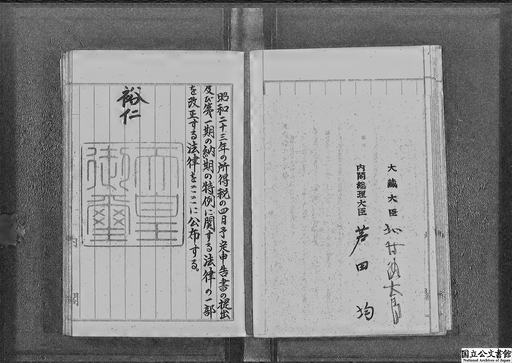 大藏大臣
内閣総理大臣 芦田均
昭和二十三年の所得税の四月予定申告書の提出
及び第一期の納期の特例に関する法律の一部
を改正する法律をここに公布する。
裕仁
天皇
御璽
国立公文書館
National Archives of Japan